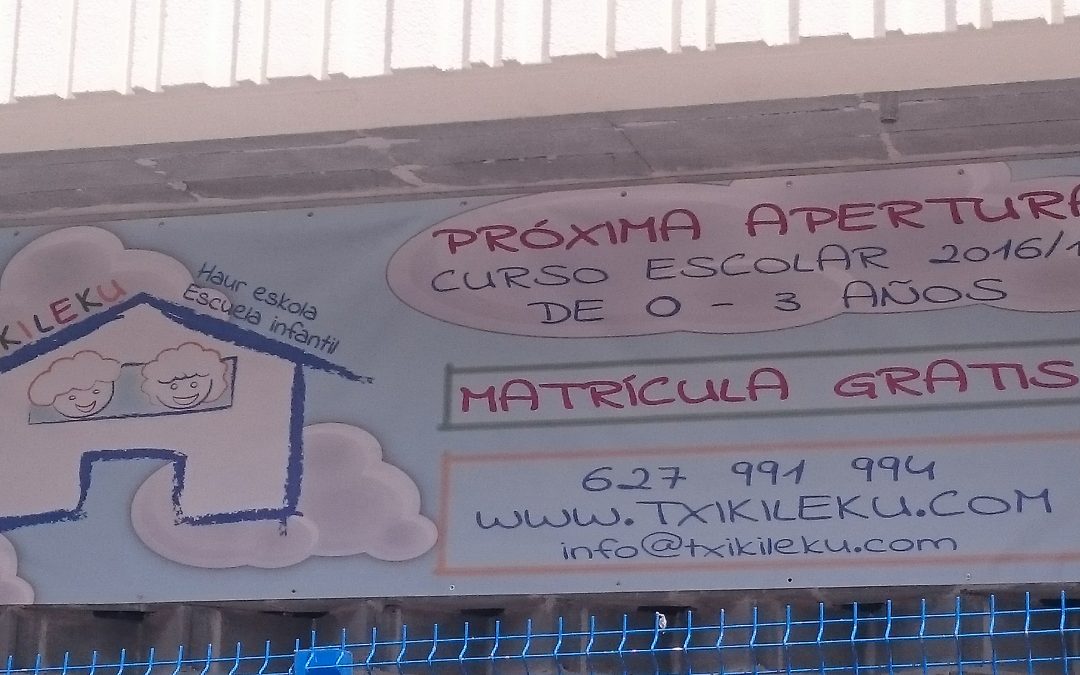 KILEKU
Haur eskola
Escuela infantil
PRÓXIMA APERTURA
CURSO ESCOLAR 2016/1
DE 0 - 3 AÑOS
MATRÍCULA GRATIS
627 991 994
WWW.TXIKILEKU.COM
info@txikileku.com